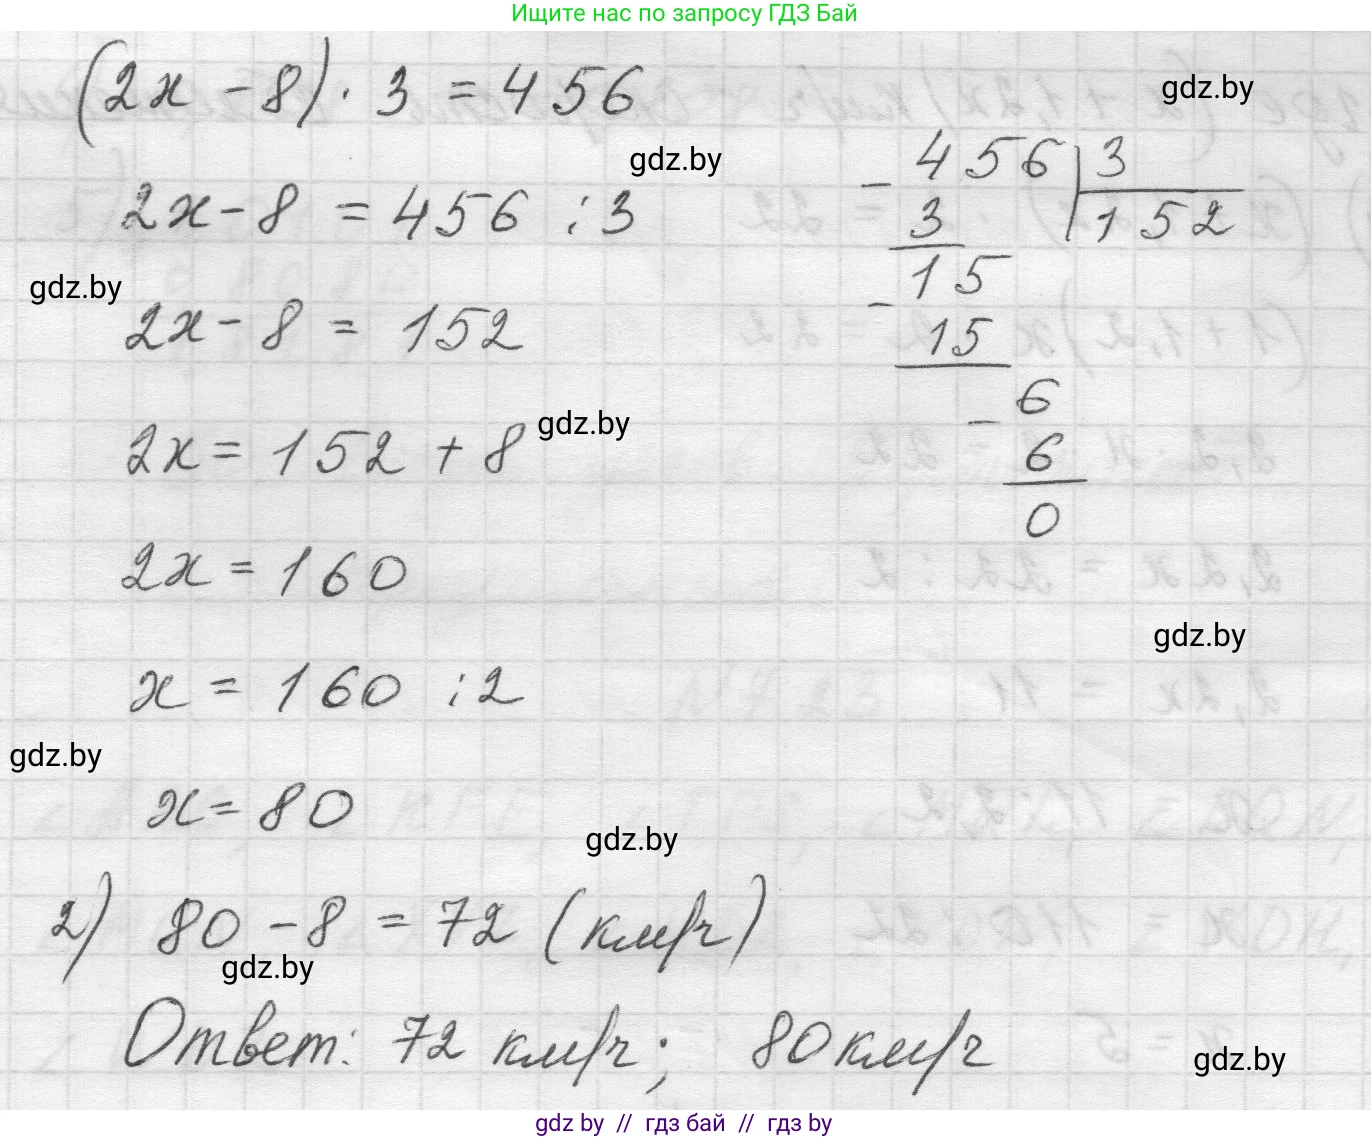 Ищите нас по запросу ГДЗ Бай
(2x - 8) · 3 = 456
gdz.by
gdz.by
2x - 8 = 456 : 3
- 456 | 3
3 | 152
15
- 15
- 6
6
0
gdz.by
2x - 8 = 152
2x = 152 + 8
gdz.by
2x = 160
gdz.by
x = 160 : 2
gdz.by
x = 80
gdz.by
2) 80 - 8 = 72 (км/ч)
gdz.by
Ответ: 72 км/ч; 80 км/ч
gdz.by
gdz.by // гдз бай // гдз by